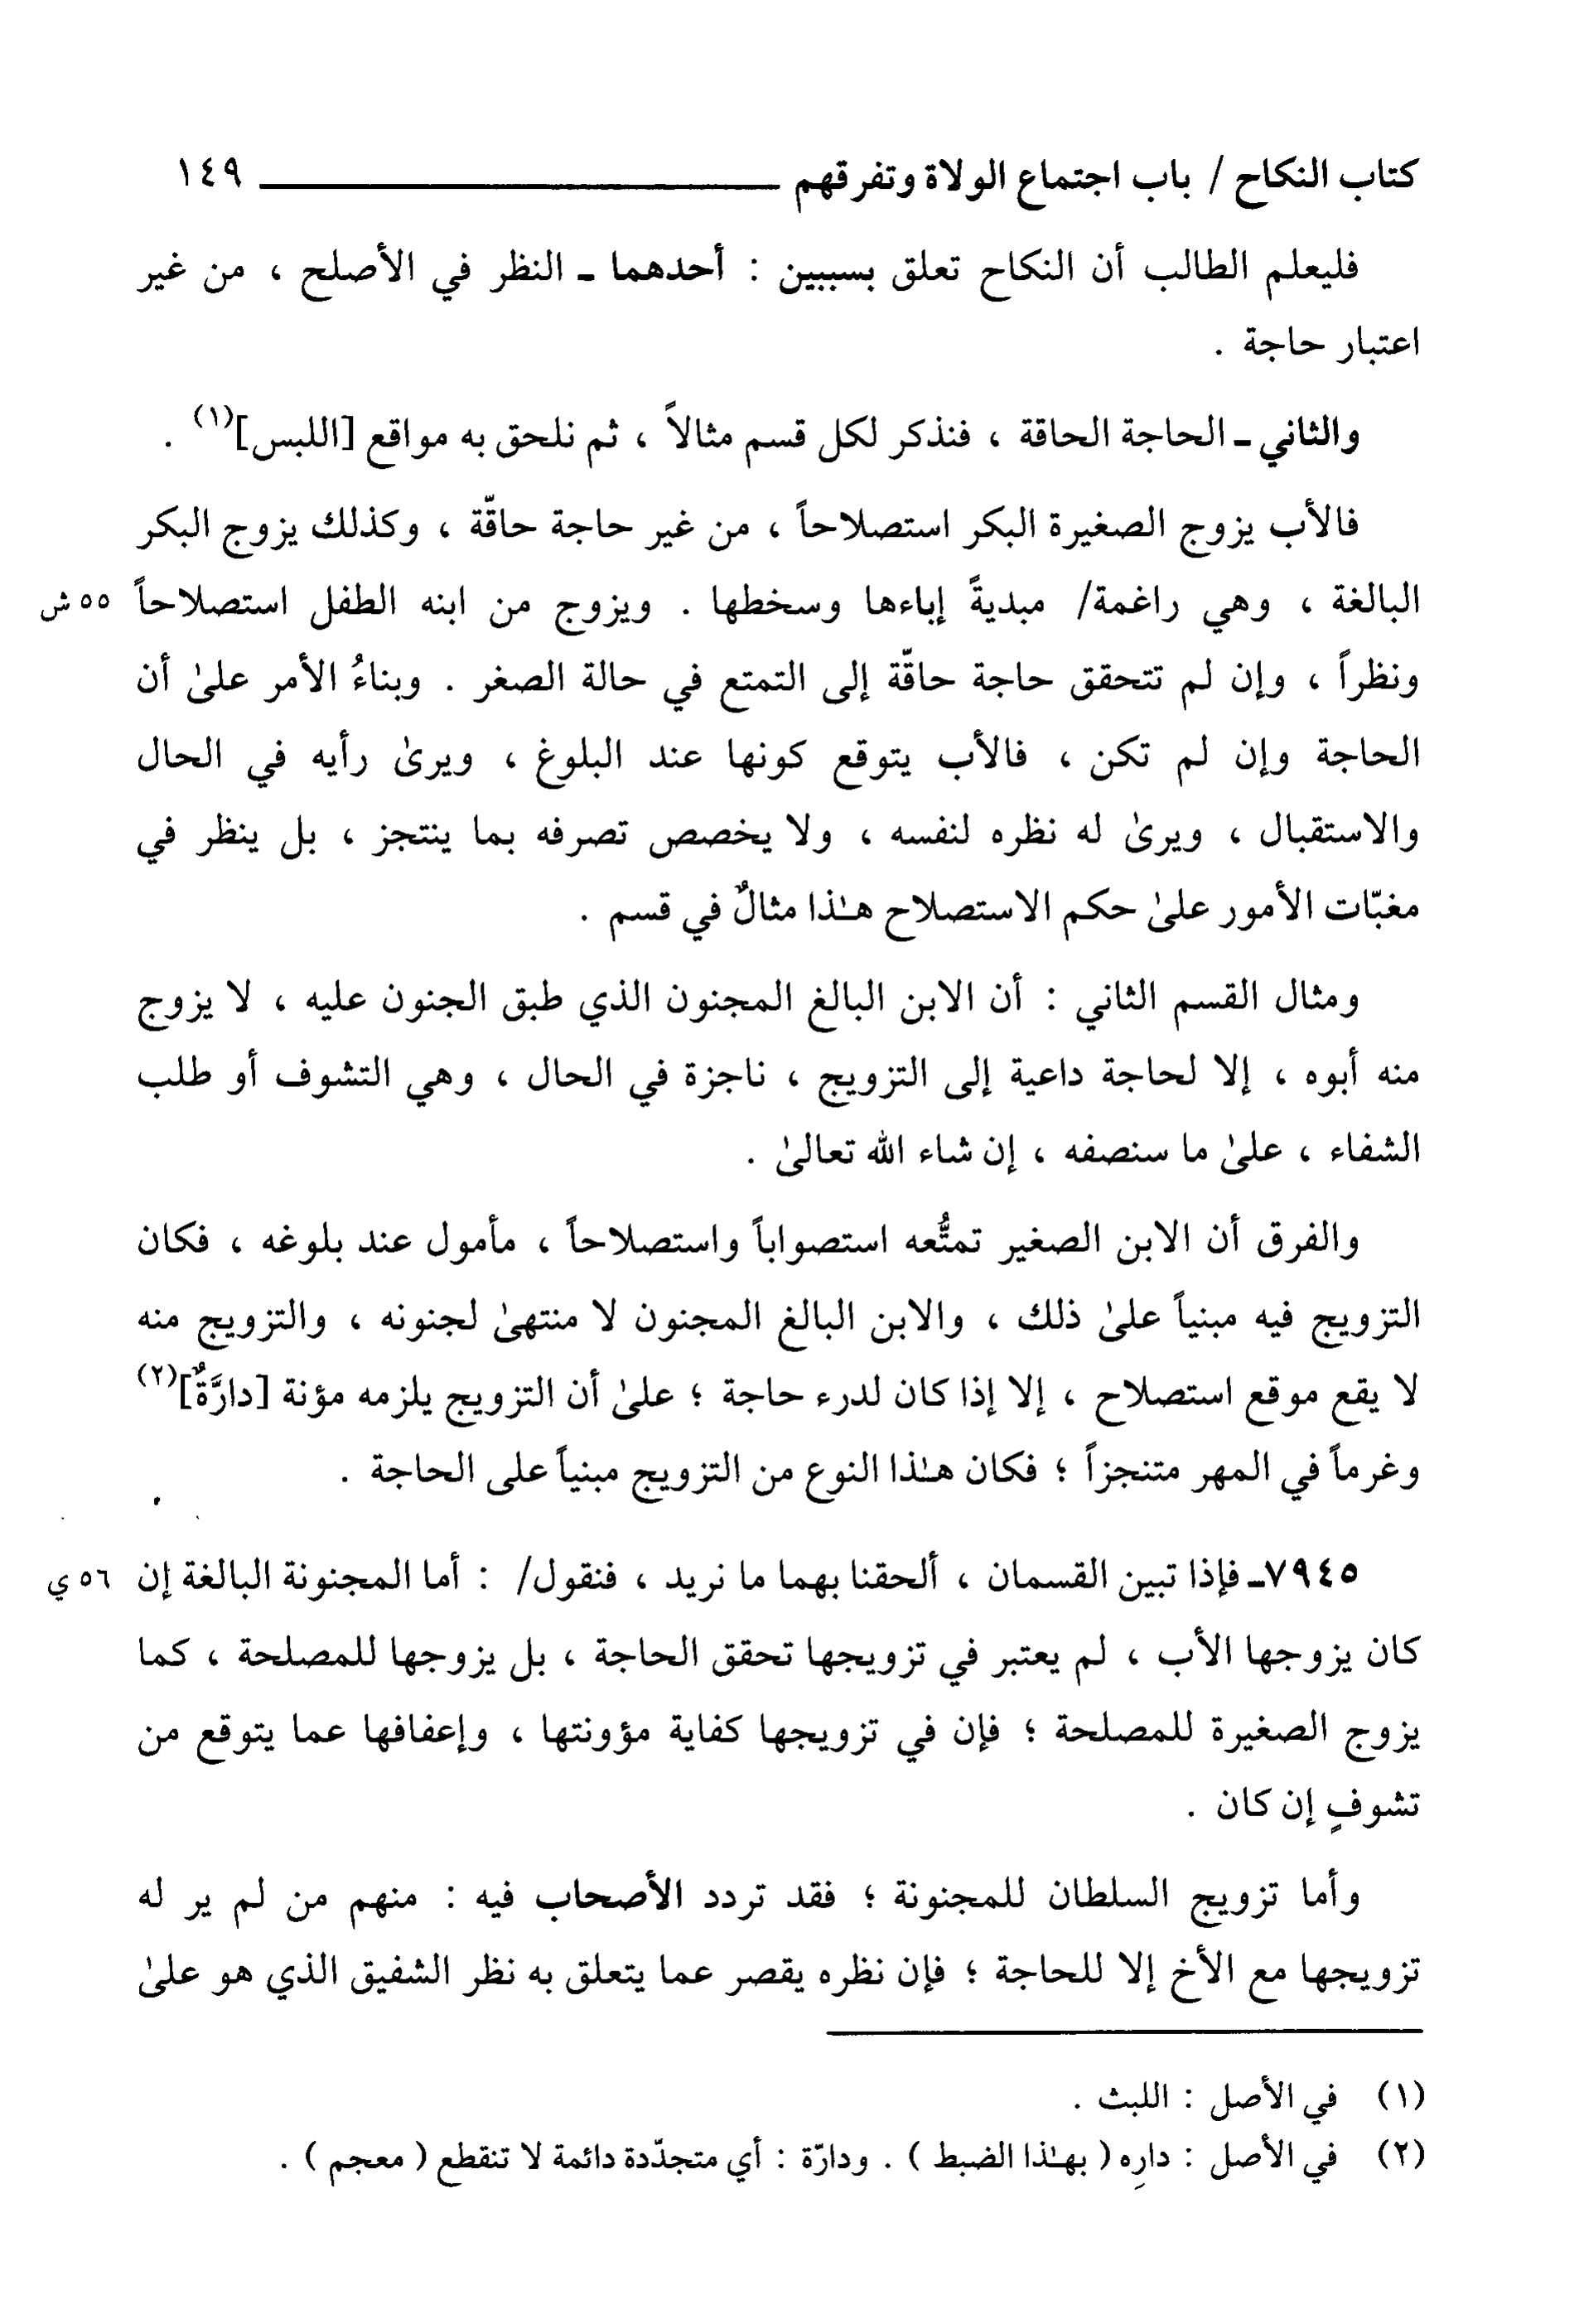 كتاب النكاح / باب اجتماع الولاة وتفرقهم ١٤٩
فليعلم الطالب أن النكاح تعلق بسببين : أحدهما ـ النظر في الأصلح ، من غير
اعتبار حاجة .
والثاني ـ الحاجة الحاقة ، فنذكر لكل قسم مثالاً ، ثم نلحق به مواقع [اللبس](١) .
فالأب يزوج الصغيرة البكر استصلاحاً ، من غير حاجة حاقّة ، وكذلك يزوج البكر
البالغة ، وهي راغمة/ مبديةً إباءها وسخطها . ويزوج من ابنه الطفل استصلاحاً ٥٥ ش
ونظراً ، وإن لم تتحقق حاجة حاقّة إلى التمتع في حالة الصغر . وبناءُ الأمر علىٰ أن
الحاجة وإن لم تكن ، فالأب يتوقع كونها عند البلوغ ، ويرىٰ رأيه في الحال
والاستقبال ، ويرىٰ له نظره لنفسه ، ولا يخصص تصرفه بما ينتجز ، بل ينظر في
مغبّات الأمور علىٰ حكم الاستصلاح هـٰذا مثالٌ في قسم .
ومثال القسم الثاني : أن الابن البالغ المجنون الذي طبق الجنون عليه ، لا يزوج
منه أبوه ، إلا لحاجة داعية إلى التزويج ، ناجزة في الحال ، وهي التشوف أو طلب
الشفاء ، علىٰ ما سنصفه ، إن شاء الله تعالىٰ .
والفرق أن الابن الصغير تمتُّعه استصواباً واستصلاحاً ، مأمول عند بلوغه ، فكان
التزويج فيه مبنياً علىٰ ذلك ، والابن البالغ المجنون لا منتهىٰ لجنونه ، والتزويج منه
لا يقع موقع استصلاح ، إلا إذا كان لدرء حاجة ؛ علىٰ أن التزويج يلزمه مؤنة [دارَّةٌ](٢)
وغرماً في المهر متنجزاً ؛ فكان هـٰذا النوع من التزويج مبنياً على الحاجة .
٧٩٤٥ـ فإذا تبين القسمان ، ألحقنا بهما ما نريد ، فنقول/ : أما المجنونة البالغة إن ٥٦ ي
كان يزوجها الأب ، لم يعتبر في تزويجها تحقق الحاجة ، بل يزوجها للمصلحة ، كما
يزوج الصغيرة للمصلحة ؛ فإن في تزويجها كفاية مؤونتها ، وإعفافها عما يتوقع من
تشوفٍ إن كان .
وأما تزويج السلطان للمجنونة ؛ فقد تردد الأصحاب فيه : منهم من لم ير له
تزويجها مع الأخ إلا للحاجة ؛ فإن نظره يقصر عما يتعلق به نظر الشفيق الذي هو علىٰ
(١) في الأصل : اللبث .
(٢) في الأصل : دارِه ( بهـٰذا الضبط ) . ودارّة : أي متجدّدة دائمة لا تنقطع ( معجم ) .